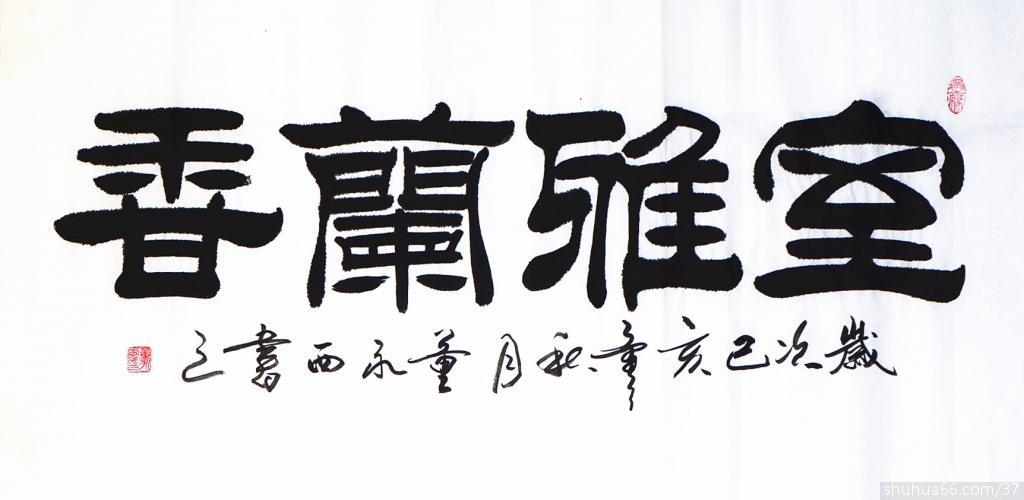 室雅蘭香
歲次己亥年秋月董永西書之
shuhua66.com/37